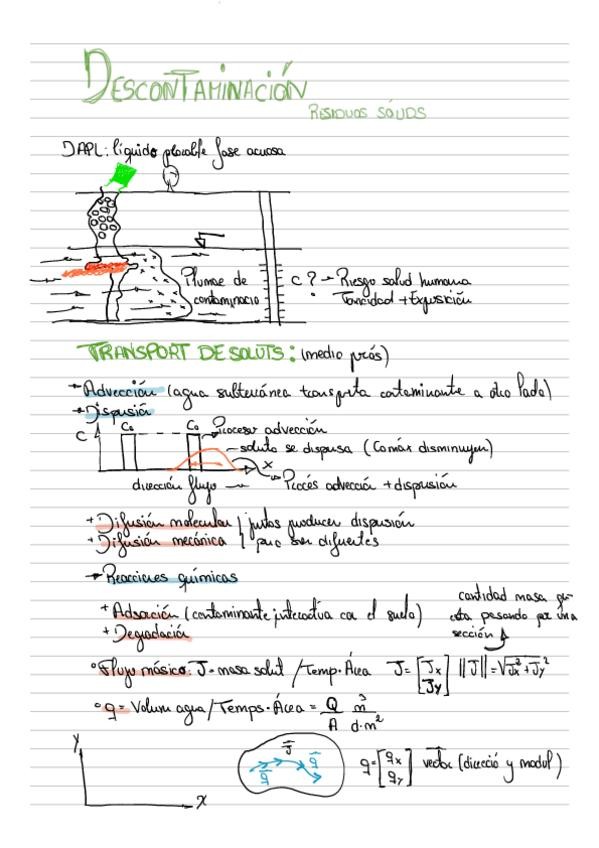 DESCONTAMINACIÓN
RESIDUOS SÓLIDS
DAPL: líquido fase acuosa
Plumae de contaminacio
C? → Riesgo salud humana
Toxicidad + Exposición
TRANSPORT DE SOLUTS: (medio porós)
→ Advección (agua subterránea transporta contaminante a otro lado)
→ Dispersión
C Co Co Proceso advección
soluto se dispersa (Comáx disminuyen)
x
dirección flujo → Procés advección + dispersión
+ Difusión molecular } juntas producen dispersión
+ Difusión mecánica } pero son diferentes
→ Reacciones químicas
+ Adsorción (contaminante interactua con el suelo)
+ Degradación
cantidad masa que
esta pasando por una
sección
° Flujo másico: J = masa solut / Temp · Área J = [Jx Jy] ||J|| = √Jx² + Jy²
° q = Volum agua / Temps · Área = Q/A m³/d·m²
Y
X
J
q q
q = [qx qy] vector (direcció y modul)